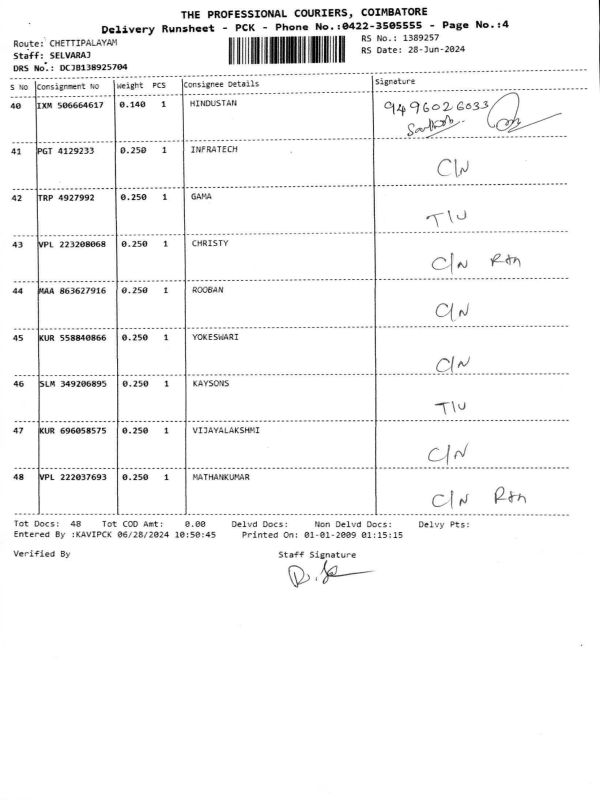 THE PROFESSIONAL COURIERS, COIMBATORE
Delivery Runsheet - PCK - Phone No.:0422-3505555 - Page No.:4
Route: CHETTIPALAYAM
RS No.: 1389257
Staff: SELVARAJ
RS Date: 28-Jun-2024
DRS No.: DCJB138925704
S No Consignment No Weight PCS Consignee Details Signature
40 IXM 506664617 0.140 1 HINDUSTAN 9496026033
41 PGT 4129233 0.250 1 INFRATECH C/N
42 TRP 4927992 0.250 1 GAMA T/U
43 VPL 223208068 0.250 1 CHRISTY C/N
44 MAA 863627916 0.250 1 ROOBAN C/N
45 KUR 558840866 0.250 1 YOKESWARI C/N
46 SLM 349206895 0.250 1 KAYSONS T/U
47 KUR 696058575 0.250 1 VIJAYALAKSHMI C/N
48 VPL 222037693 0.250 1 MATHANKUMAR C/N
Tot Docs: 48 Tot COD Amt: 0.00 Delvd Docs: Non Delvd Docs: Delvy Pts:
Entered By :KAVIPCK 06/28/2024 10:50:45 Printed On: 01-01-2009 01:15:15
Verified By Staff Signature